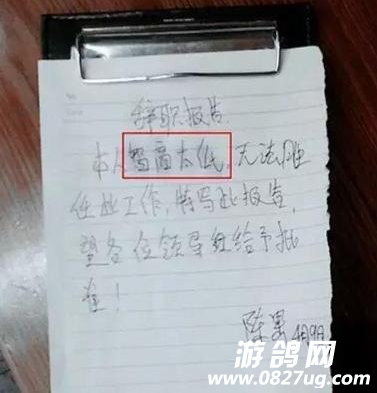 辞职报告
本人智商太低,无法胜
任此工作,特写此报告,
望各位领导能给予批
准!
陈 4月9日
游鸽网
www.0827ug.com